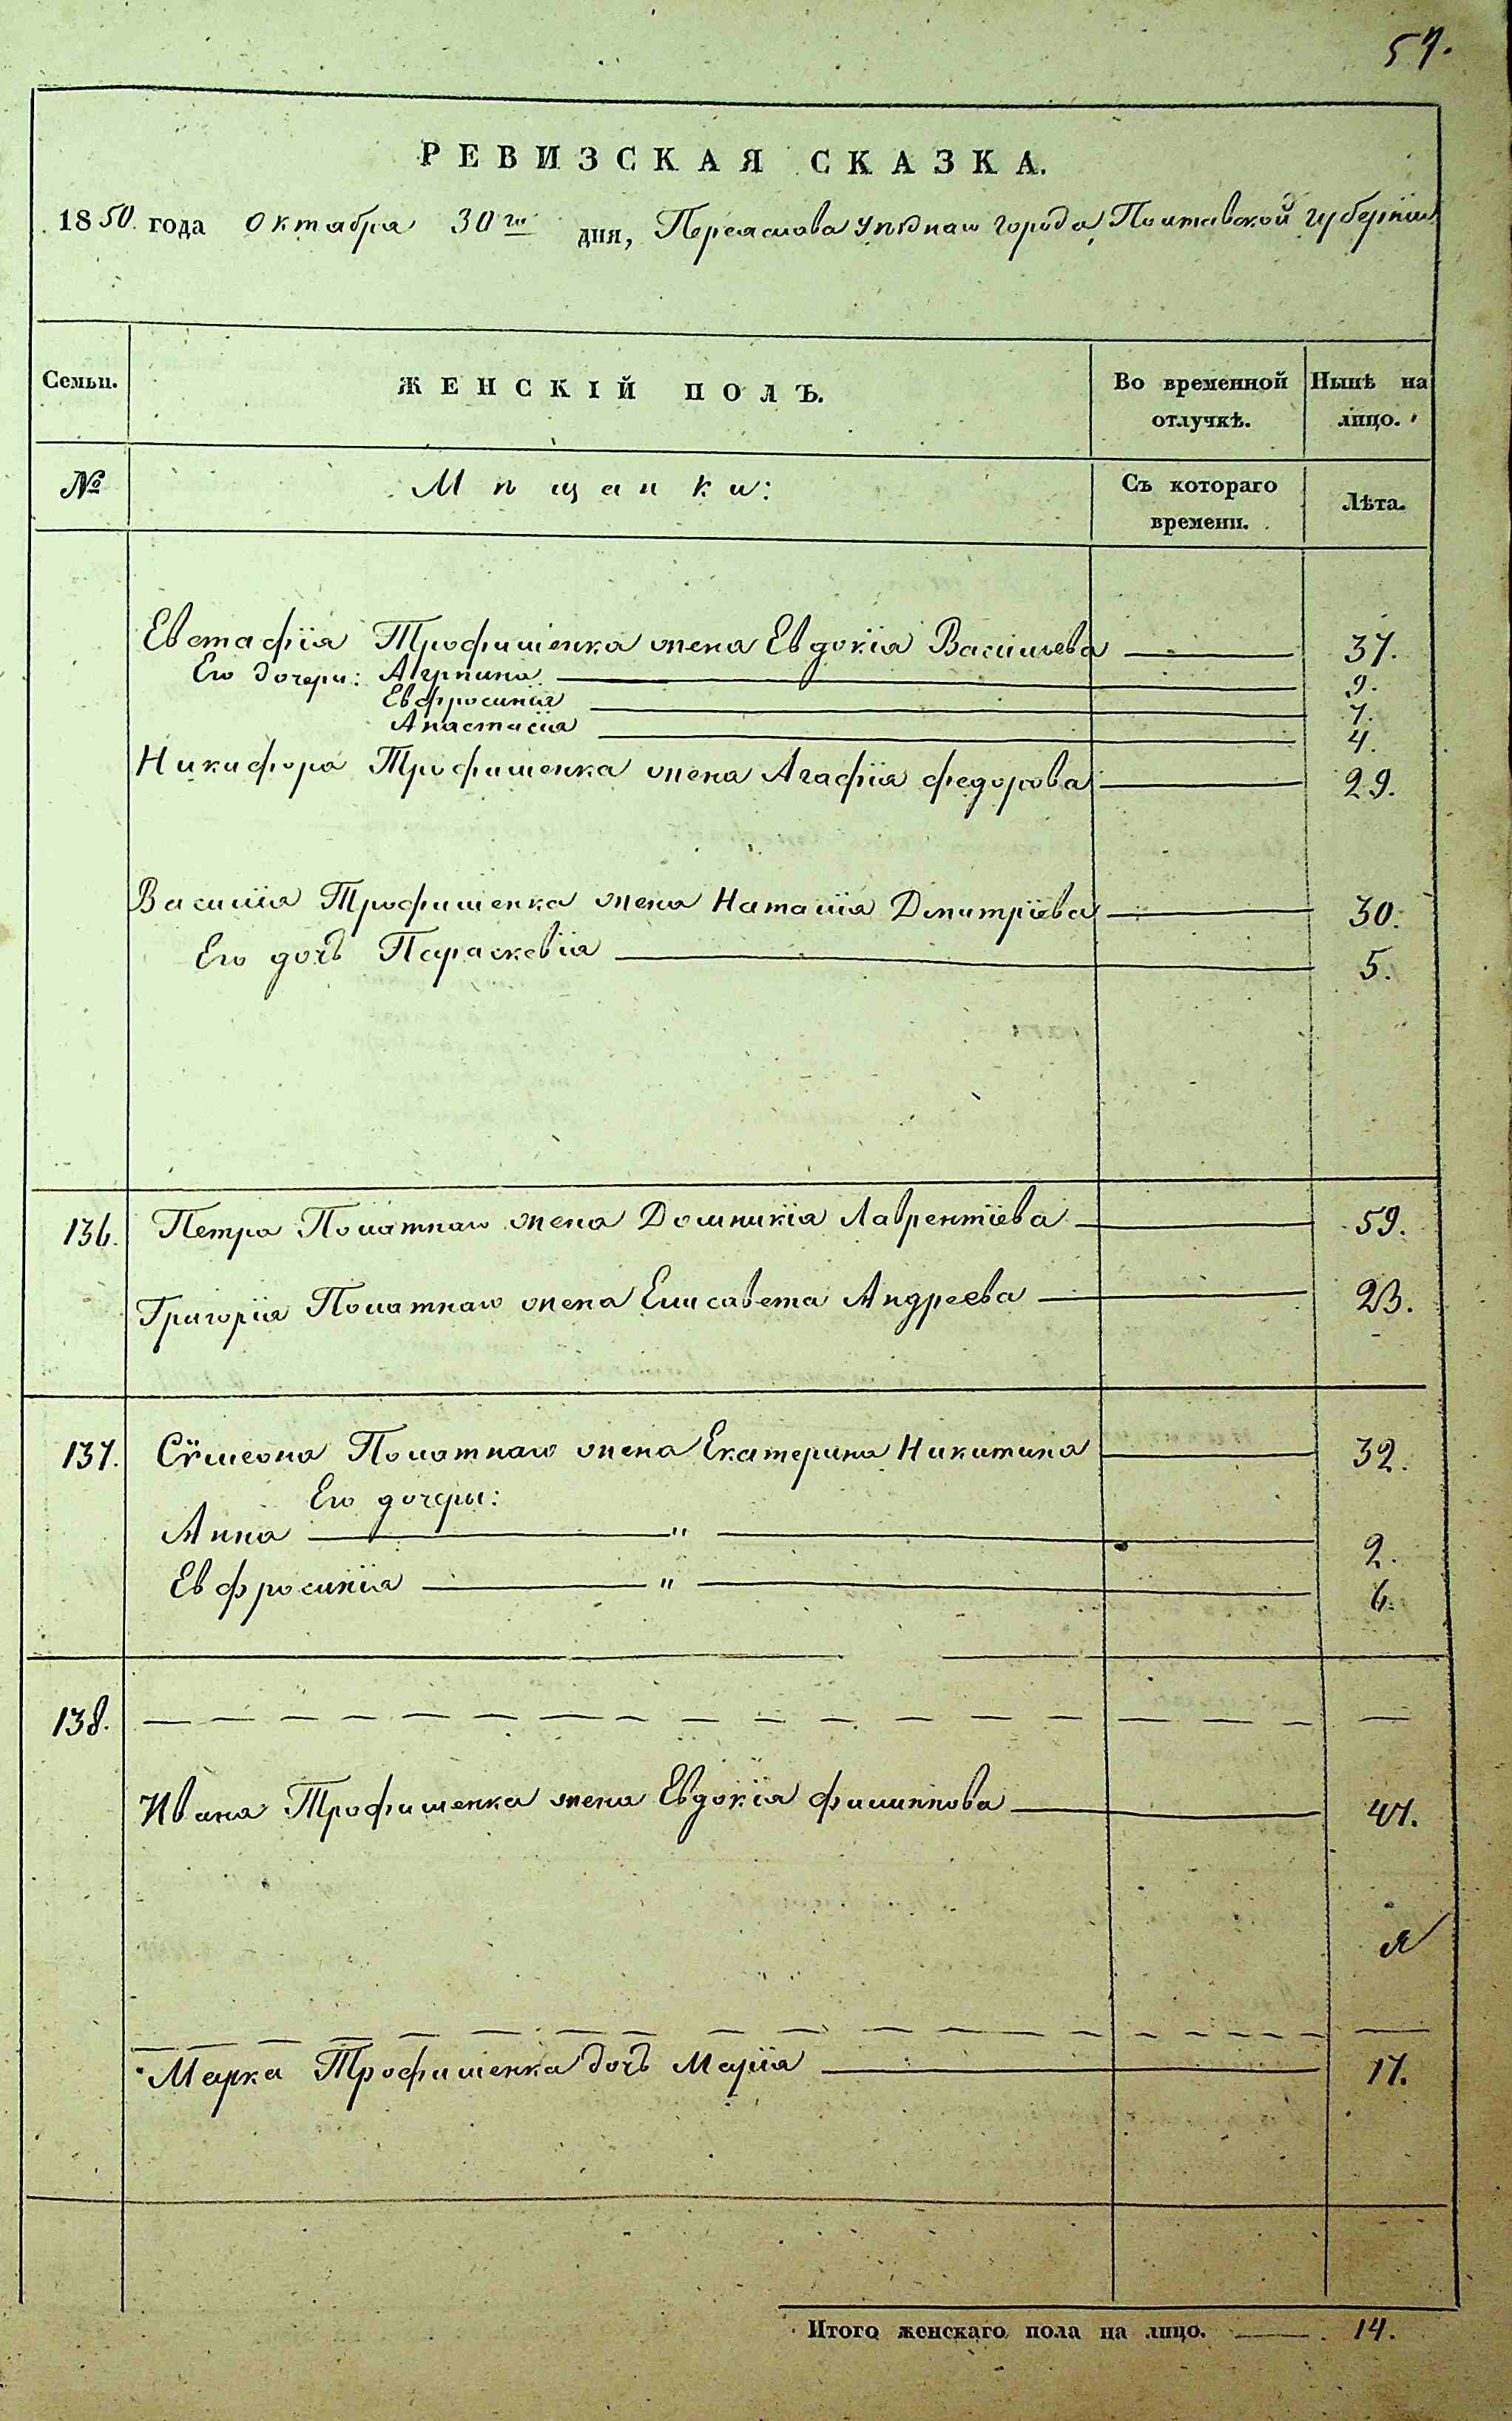 57.
РЕВИЗСКАЯ СКАЗКА.
1850 года Октября 30го дня, Переяслова уѣзднаго города, Полтавской губерніи
Семьи. ЖЕНСКІЙ ПОЛЪ. Во временной отлучкѣ. Нынѣ на лицо.
№ Мѣщанки: Съ котораго времени. Лѣта.
Евстафія Трофименка жена Евдокія Васильева 37.
Его дочери: Агрпина 9.
Евфросинія 7.
Анастасія 4.
Никифора Трофименка жена Агафія Федорова 29.
Василія Трофименка жена Наталія Дмитріева 30.
Его дочь Параскевія 5.
136. Петра Полатнаго жена Домникія Лаврентіева 59.
Григорія Полатнаго жена Елисавета Андреева 23.
137. Сѵмеона Полатнаго жена Екатерина Никитина 32.
Его дочери:
Анна " 2.
Евфросинія " 6.
138.
Ивана Трофименка жена Евдокія Филиппова 47.
Марка Трофименка дочь Марія 17.
Итого женскаго пола на лицо. 14.